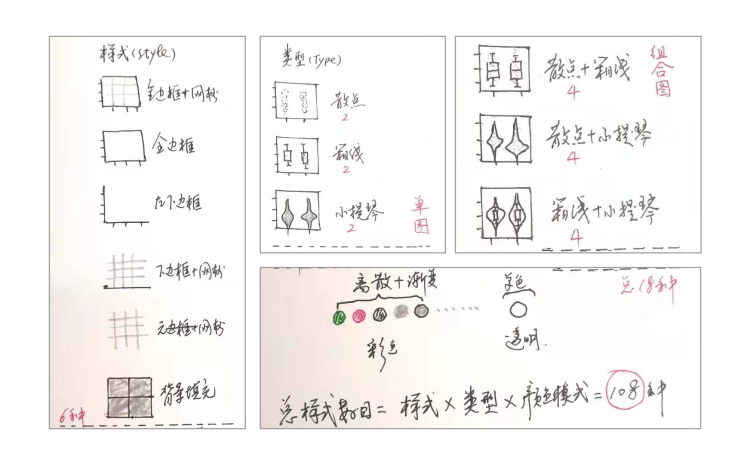 样式(style)
全边框+网格
全边框
左下边框
下边框+网格
无边框+网格
背景填充
6种
类型(Type)
散点
2
箱线
2
小提琴
2
单图
散点+箱线
4
组合图
散点+小提琴
4
箱线+小提琴
4
总18种
离散+渐变
彩色
单色
透明.
总样式数目=样式×类型×颜色模式=108种